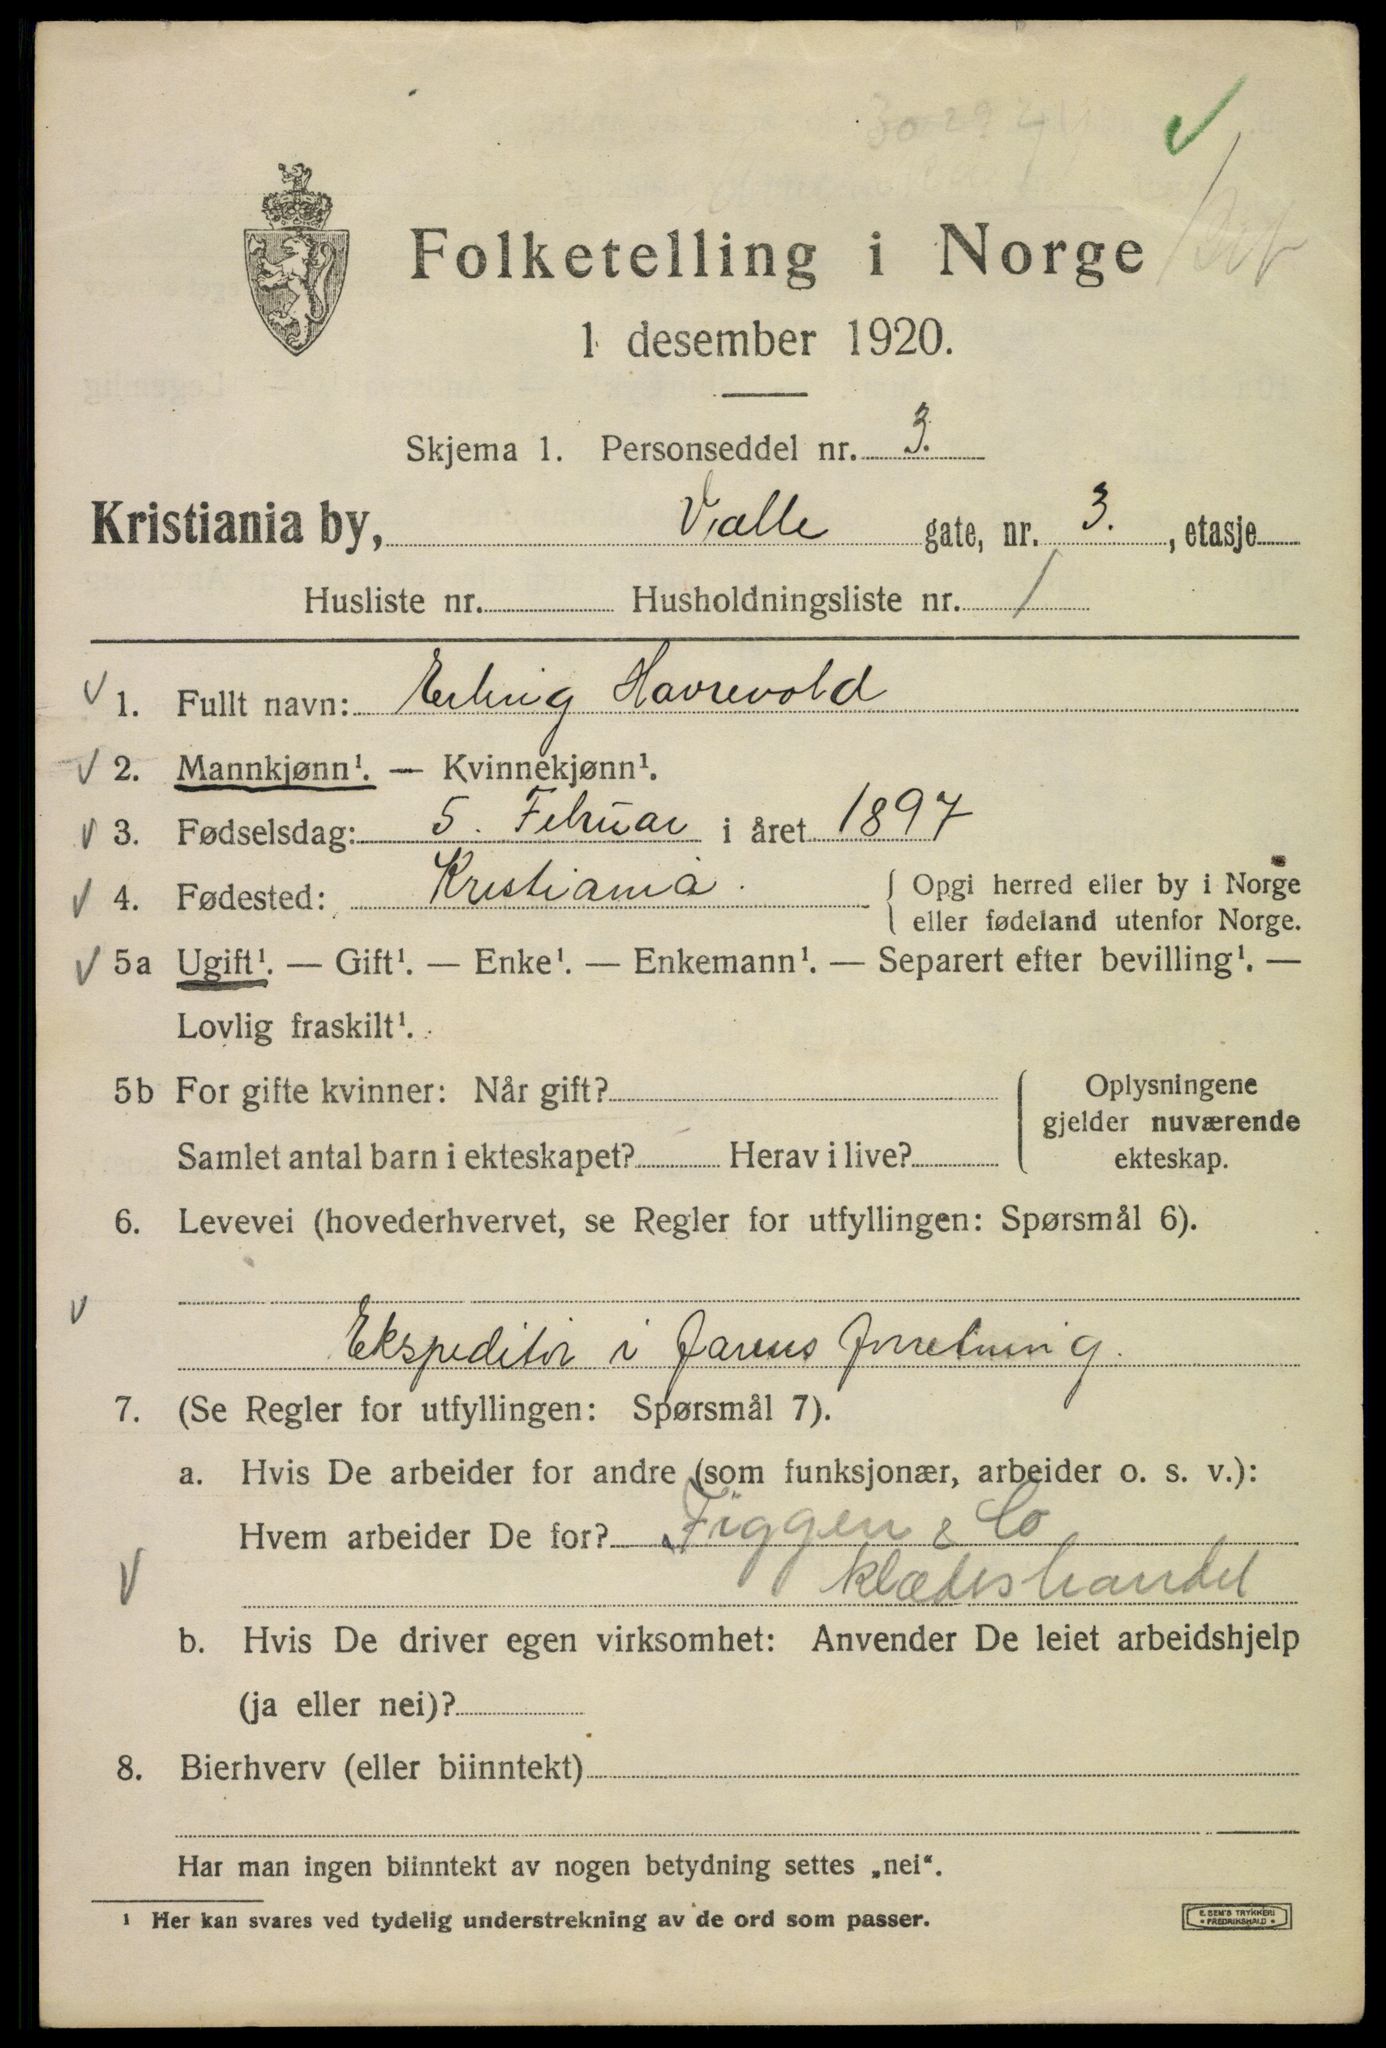 Folketelling i Norge
1 desember 1920.
Skjema 1. Personseddel nr. 3.
Kristiania by, Valle gate, nr. 3., etasje
Husliste nr. Husholdningsliste nr. 1
1. Fullt navn: Erling Havrevold
2. Mannkjønn¹. — Kvinnekjønn¹.
3. Fødselsdag: 5. Februar i året 1897
4. Fødested: Kristiania. { Opgi herred eller by i Norge
eller fødeland utenfor Norge.
5a Ugift¹. — Gift¹. — Enke¹. — Enkemann¹. — Separert efter bevilling¹. —
Lovlig fraskilt¹.
5b For gifte kvinner: Når gift? { Oplysningene
gjelder nuværende
Samlet antal barn i ekteskapet? Herav i live? ekteskap.
6. Levevei (hovederhvervet, se Regler for utfyllingen: Spørsmål 6).
Ekspeditör i farens forretning.
7. (Se Regler for utfyllingen: Spørsmål 7).
a. Hvis De arbeider for andre (som funksjonær, arbeider o. s. v.):
Hvem arbeider De for? Figgen & Co
klædeshandel
b. Hvis De driver egen virksomhet: Anvender De leiet arbeidshjelp
(ja eller nei)?
8. Bierhverv (eller biinntekt)
Har man ingen biinntekt av nogen betydning settes „nei“.
¹ Her kan svares ved tydelig understrekning av de ord som passer.
E. SEM'S TRYKKERI
FREDRIKSHALD